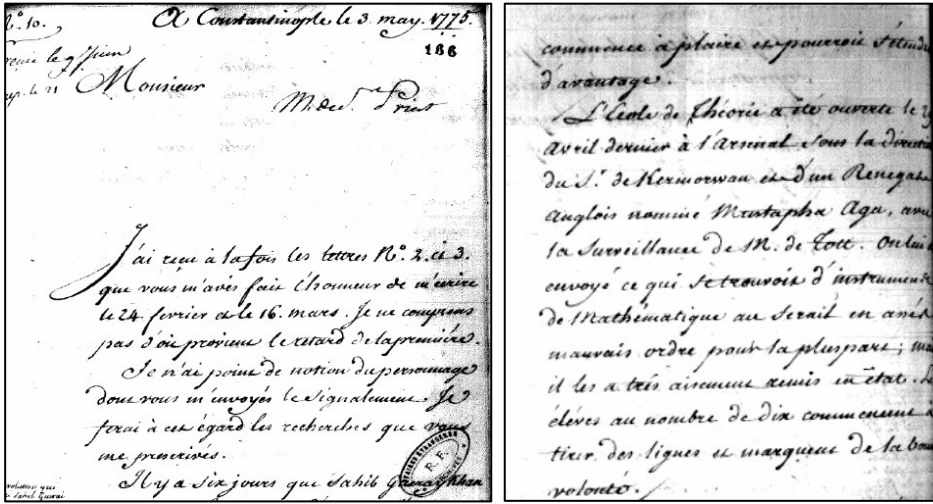 N.º 10.
A Constantinople le 3. may. 1775.
166
Monsieur
J'ai reçu à la fois les lettres N.º 2. et 3.
que vous m'avés fait l'honneur de m'écrire
le 24. fevrier et le 16. mars. Je ne comprens
pas d'où provient le retard de la premiére.
Je n'ai point de notion du personnage
dont vous m'envoyés le signalement. Je
ferai à cet égard les recherches que vous
me prescrivés.
Il y a six jours que Sahib Gueray Khan
commence à plaire et pourroit s'étendre
d'avantage.
L'École de Théorie a été ouverte le
Avril dernier à l'Arsenal sous la direction
du S.r de Kermorwan et d'un Renegat
Anglois nommé Mustapha Aga, avec
la Surveillance de M. de Tott. On lui a
envoyé ce qui se trouvoit d'instrumens
de Mathématique au Serail en assés
mauvais ordre pour la pluspart; mais
il les a très aisement remis en état. Les
éléves au nombre de dix commencent à
tirer des lignes et marquent de la bonne
volonté.